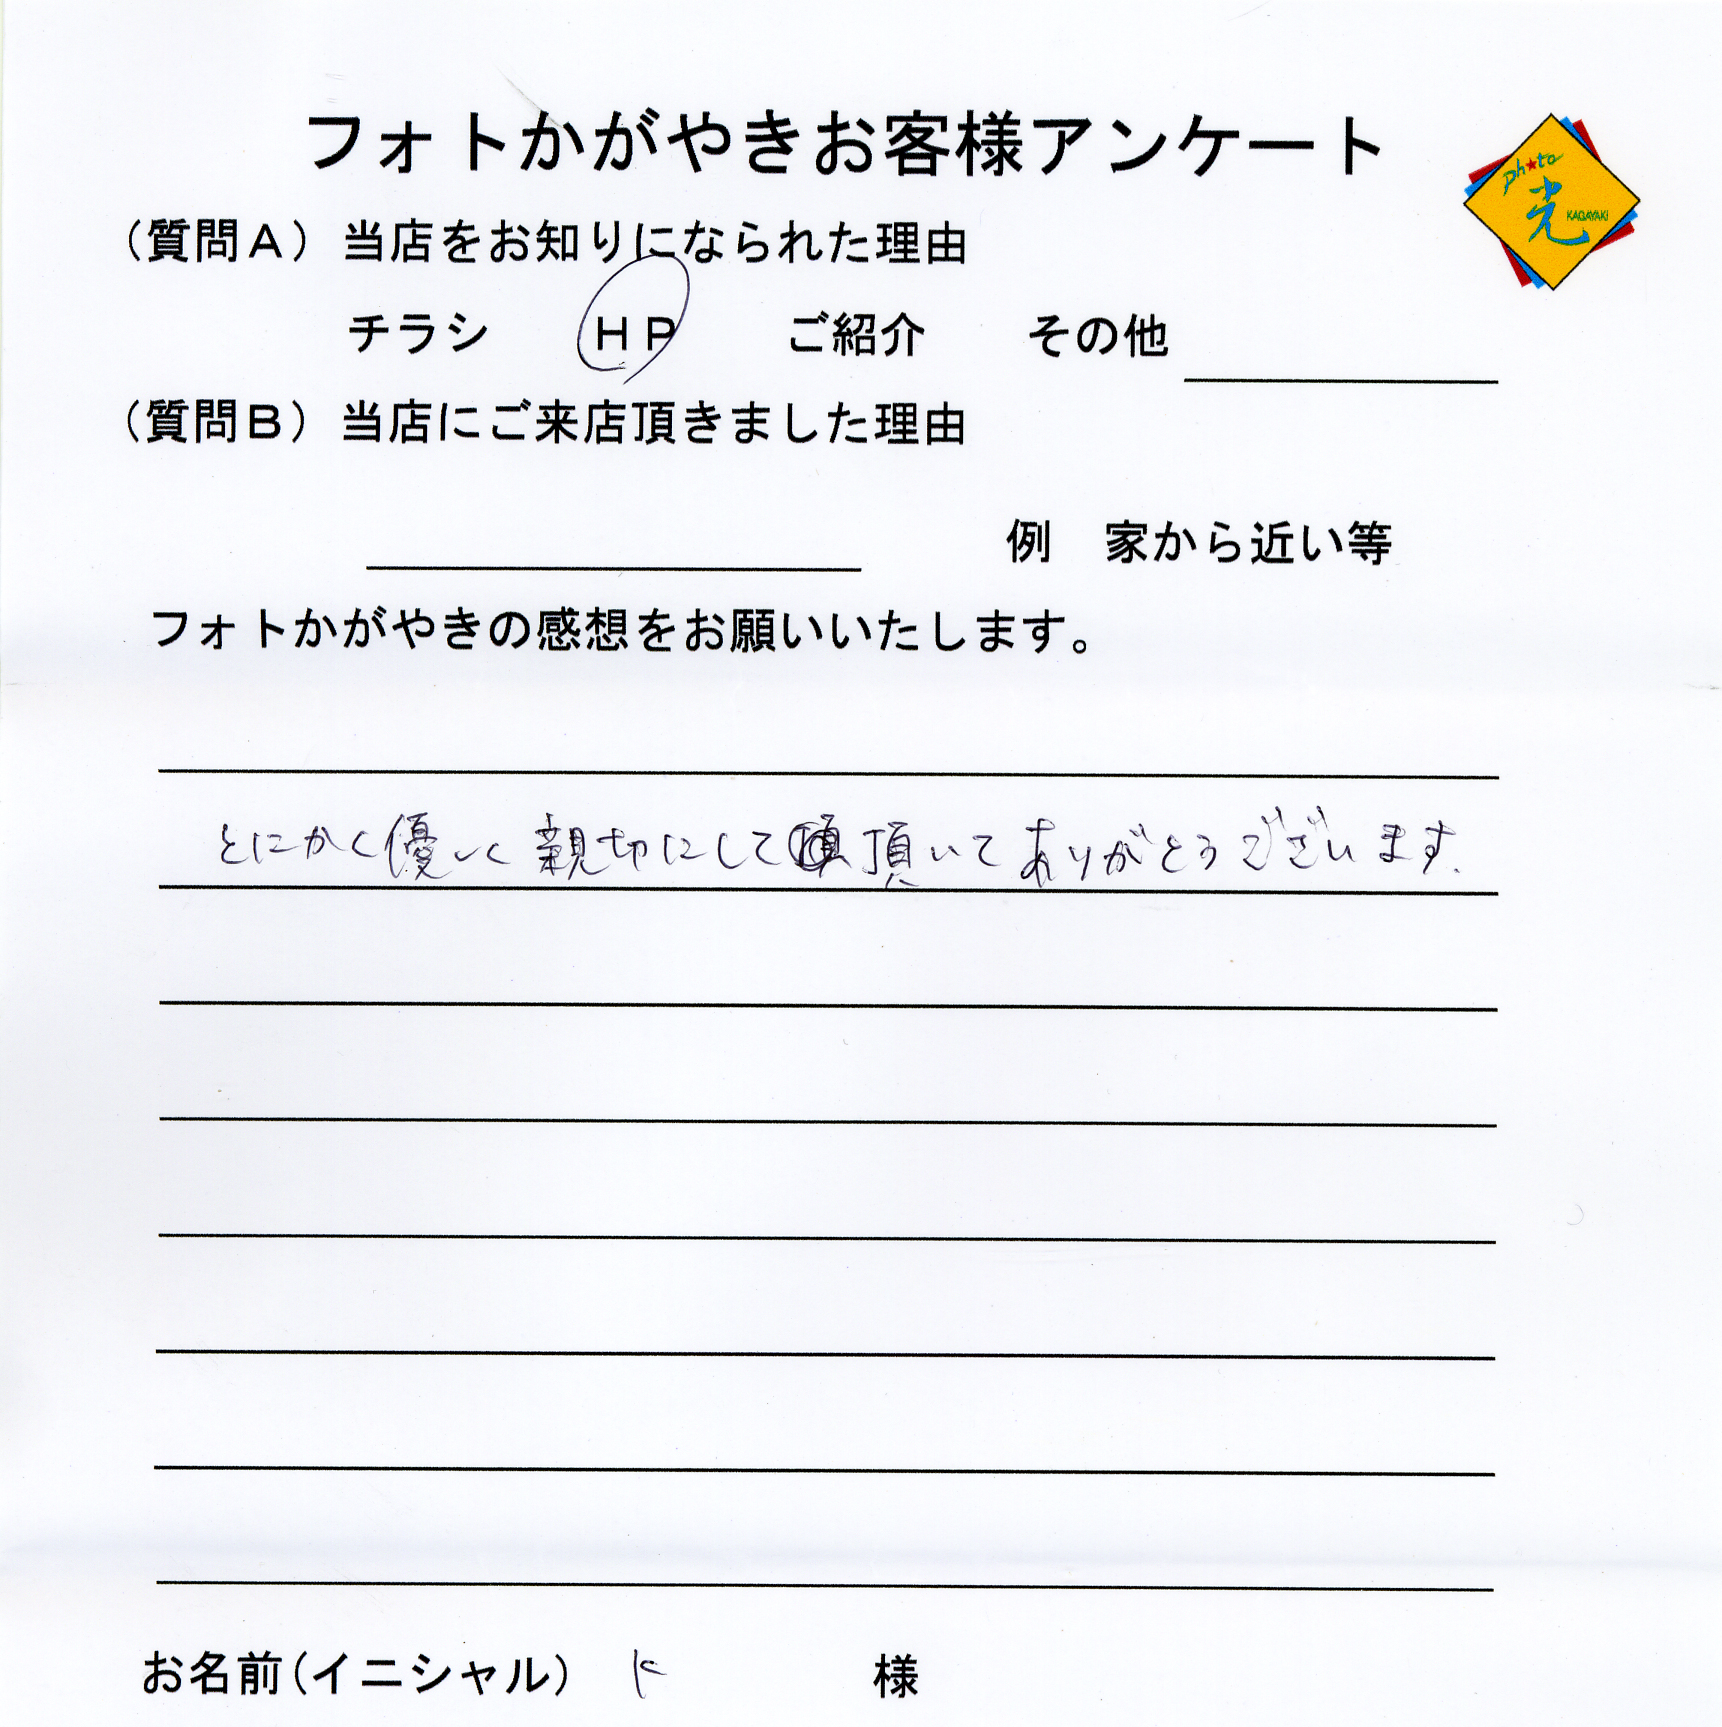 フォトかがやきお客様アンケート
photo
光
KAGAYAKI
（質問Ａ）当店をお知りになられた理由
チラシ　ＨＰ　ご紹介　その他
（質問Ｂ）当店にご来店頂きました理由
例　家から近い等
フォトかがやきの感想をお願いいたします。
とにかく優しく親切にして頂いてありがとうございます.
お名前(イニシャル)　K　様